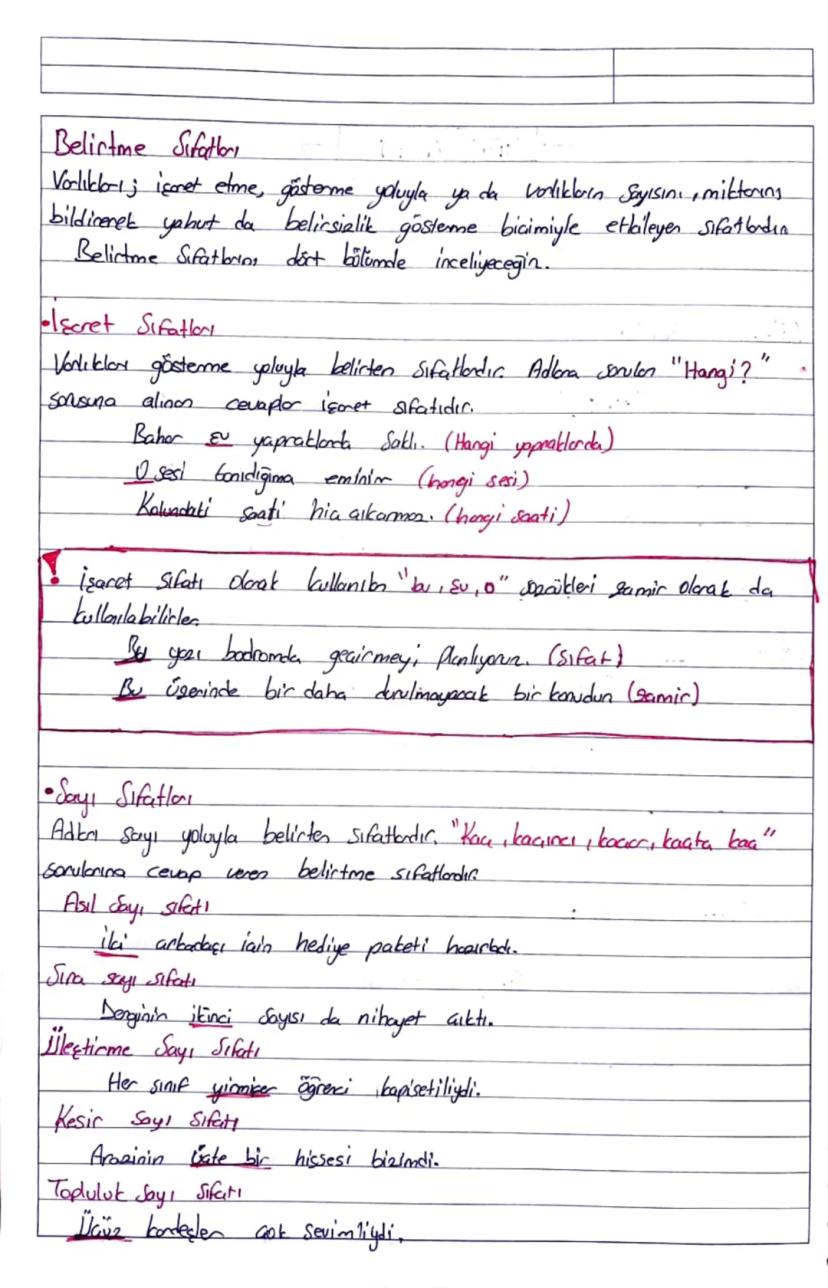 Belirtme Sıfatları
Varlıkları; işaret etme, gösterme yoluyla ya da varlıkların sayısını, miktarını
bildirerek yahut da belirsizlik gösterme biçimiyle etkileyen sıfatlardır.
Belirtme Sıfatlarını dört bölümde inceliyeceğin.
•İşaret Sıfatları
Varlıkları gösterme yoluyla belirten sıfatlardır. Adlara sorulan "Hangi?"
sorusuna alınan cevaplar işaret sıfatıdır.
Bahar şu yapraklarda Saklı. (Hangi yapraklarda)
O sesi tanıdığıma eminim (hangi sesi)
Kolundaki saati hiç çıkarmaz. (hangi saati)
! İşaret sıfatı olarak kullanılan "bu, şu, o" sözcükleri zamir olarak da
kullanılabilirler.
Bu yazı bodrumda geçirmeyi planlıyoruz. (Sıfat)
Bu üzerinde bir daha durulmayacak bir konudur. (zamir)
•Sayı Sıfatları
Adları sayı yoluyla belirten sıfatlardır. "Kaç, kaçıncı, kaçar, kaçta kaç"
sorularına cevap veren belirtme sıfatlardır.
Asıl Sayı sıfatı
İki arkadaşı için hediye paketi hazırladı.
Sıra sayı sıfatı
Derginin ikinci sayısı da nihayet çıktı.
Üleştirme Sayı Sıfatı
Her sınıf yirmişer öğrenci
Kesir Sayı Sıfatı
Arazinin üçte bir hissesi bizimdi.
Topluluk Sayı Sıfatı
Üçüz kardeşler çok sevimliydi.